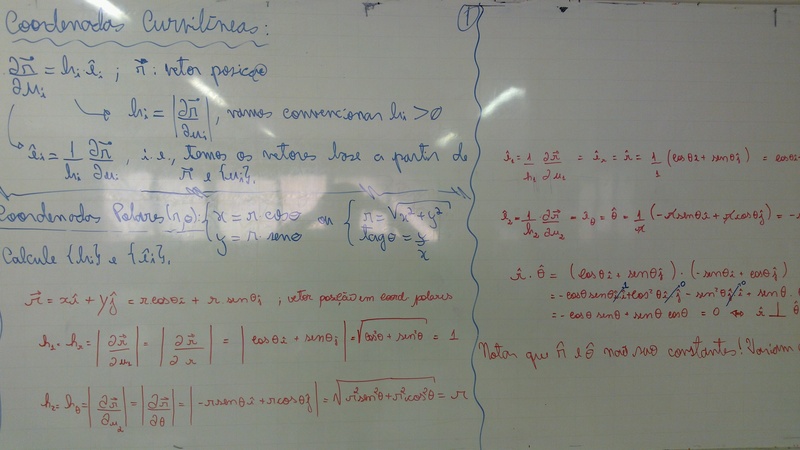 Coordenadas Curvilíneas:
∂r⃗/∂uᵢ = hᵢ êᵢ ; r⃗: vetor posição
hᵢ = |∂r⃗/∂uᵢ|, vamos convencionar hᵢ > 0
êᵢ = 1/hᵢ ∂r⃗/∂uᵢ, i.e., temos os vetores base a partir de
r⃗ e {uᵢ}.
Coordenadas Polares (r,θ): { x = r cosθ ou { r = √(x² + y²)
y = r senθ tagθ = y/x
Calcule {hᵢ} e {êᵢ}.
r⃗ = xî + yĵ = r cosθ î + r senθ ĵ ; vetor posição em coord polares
h₁ = hᵣ = |∂r⃗/∂u₁| = |∂r⃗/∂r| = |cosθ î + senθ ĵ| = √(cos²θ + sen²θ) = 1
h₂ = h_θ = |∂r⃗/∂u₂| = |∂r⃗/∂θ| = |-r senθ î + r cosθ ĵ| = √(r² sen²θ + r² cos²θ) = r
1
ê₁ = 1/h₁ ∂r⃗/∂u₁ = êᵣ = r̂ = 1/1 (cosθ î + senθ ĵ) = cosθ
ê₂ = 1/h₂ ∂r⃗/∂u₂ = ê_θ = θ̂ = 1/r (-r senθ î + r cosθ ĵ) = -
r̂ · θ̂ = (cosθ î + senθ ĵ) · (-senθ î + cosθ ĵ)
= -cosθ senθ
= -cosθ senθ + senθ cosθ = 0 ⇔ r̂ ⊥ θ̂
Notar que r̂ e θ̂ não são constantes! Variam